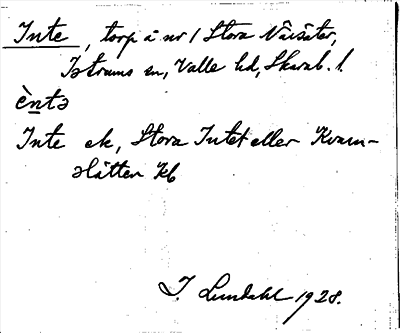 Inte, torp å nr 1 Stora Våsäter,
Istrums sn, Valle hd, Skarab. l.
èntə
Inte ek, Stora Intet eller Kvarn-
slätten kb
I. Lundahl 1928.